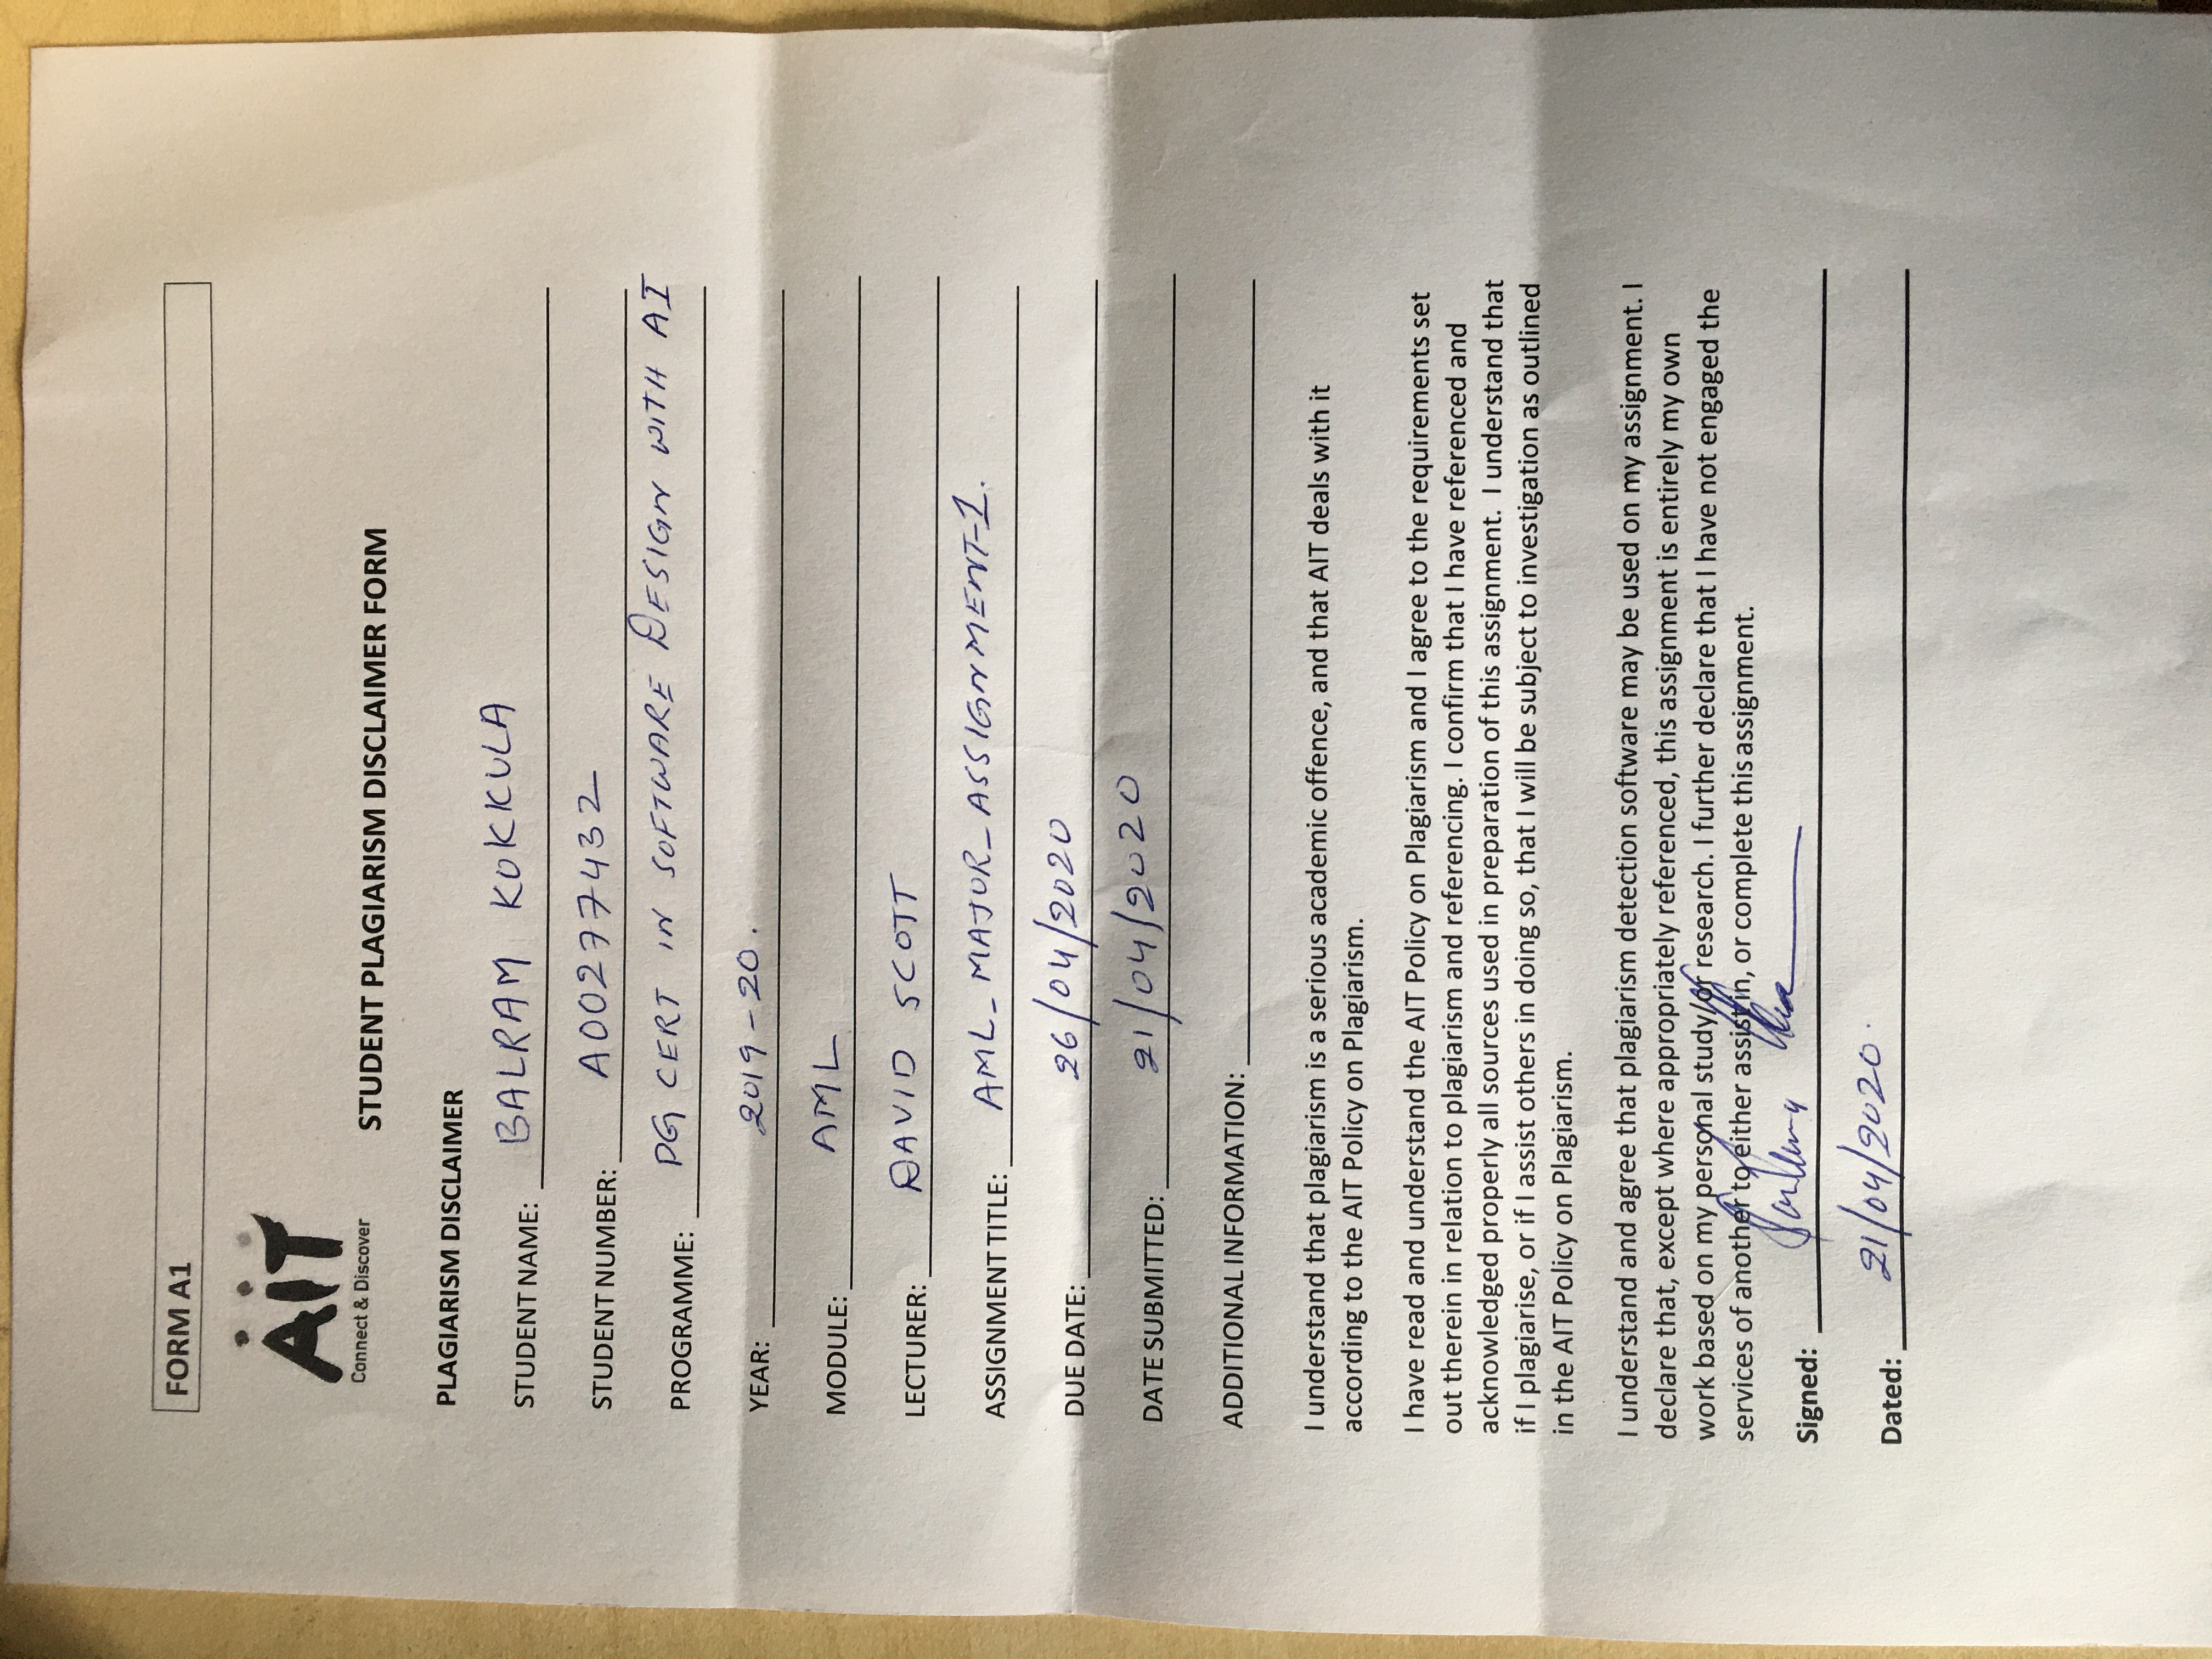 FORM A1
AIT
Connect & Discover
STUDENT PLAGIARISM DISCLAIMER FORM
PLAGIARISM DISCLAIMER
STUDENT NAME: BALRAM KOKKULA
STUDENT NUMBER: A00277432
PROGRAMME: PG CERT IN SOFTWARE DESIGN WITH AI
YEAR: 2019-20.
MODULE: AML
LECTURER: DAVID SCOTT
ASSIGNMENT TITLE: AML_MAJOR_ASSIGNMENT-1.
DUE DATE: 26/04/2020
DATE SUBMITTED: 21/04/2020
ADDITIONAL INFORMATION:
I understand that plagiarism is a serious academic offence, and that AIT deals with it
according to the AIT Policy on Plagiarism.
I have read and understand the AIT Policy on Plagiarism and I agree to the requirements set
out therein in relation to plagiarism and referencing. I confirm that I have referenced and
acknowledged properly all sources used in preparation of this assignment. I understand that
if I plagiarise, or if I assist others in doing so, that I will be subject to investigation as outlined
in the AIT Policy on Plagiarism.
I understand and agree that plagiarism detection software may be used on my assignment. I
declare that, except where appropriately referenced, this assignment is entirely my own
work based on my personal study/or research. I further declare that I have not engaged the
services of another to either assist in, or complete this assignment.
Signed:
Dated: 21/04/2020.